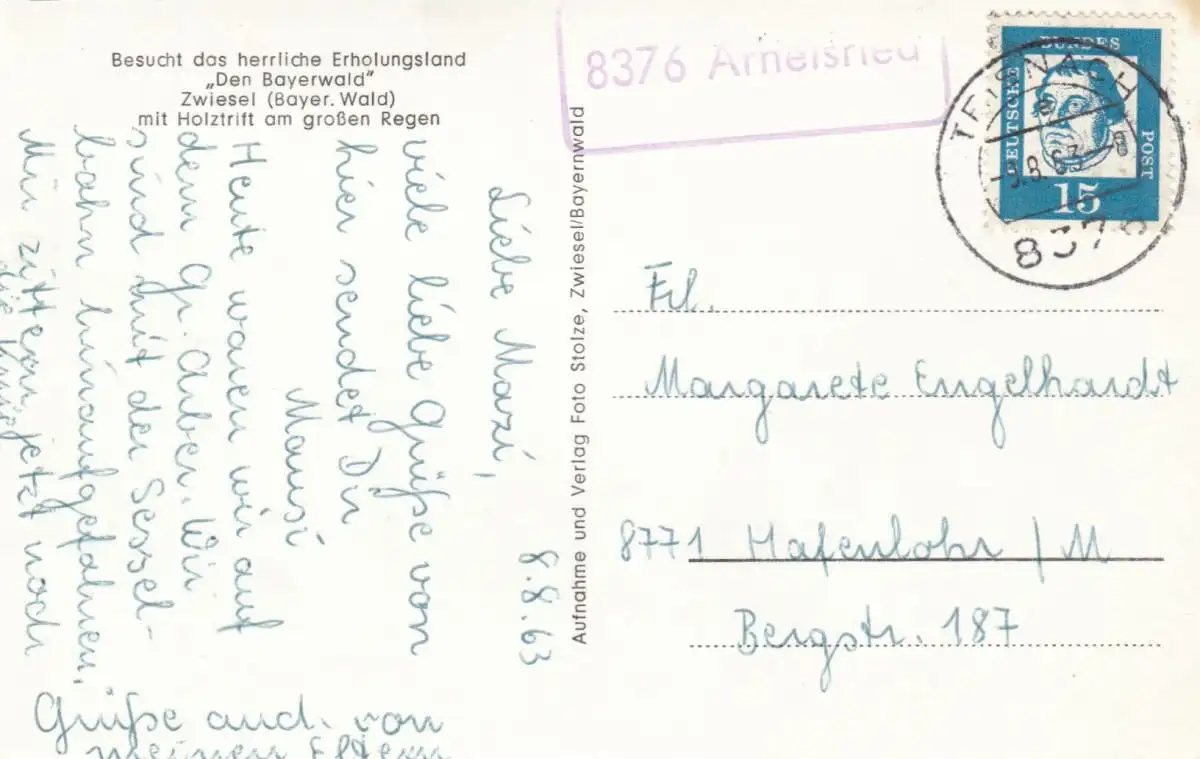 Besucht das herrliche Erholungsland
„Den Bayerwald"
Zwiesel (Bayer. Wald)
mit Holztrift am großen Regen
8376 Arnetsried
DEUTSCHE
BUNDES
POST
15
TEISNACH
8.63
8376
8.8.63
Liebe Marzi,
viele liebe Grüße von
hier sendet Dir
Mausi
Heute waren wir auf
dem Gr. Arber. Wir
sind mit der Sessel-
bahn hinaufgefahren.
Mir zittern jetzt noch
die Knie
Grüße auch von
meinen Eltern
Aufnahme und Verlag Foto Stolze, Zwiesel/Bayernwald
Frl.
Margarete Engelhardt
8771 Hafenlohr / M
Bergstr. 187